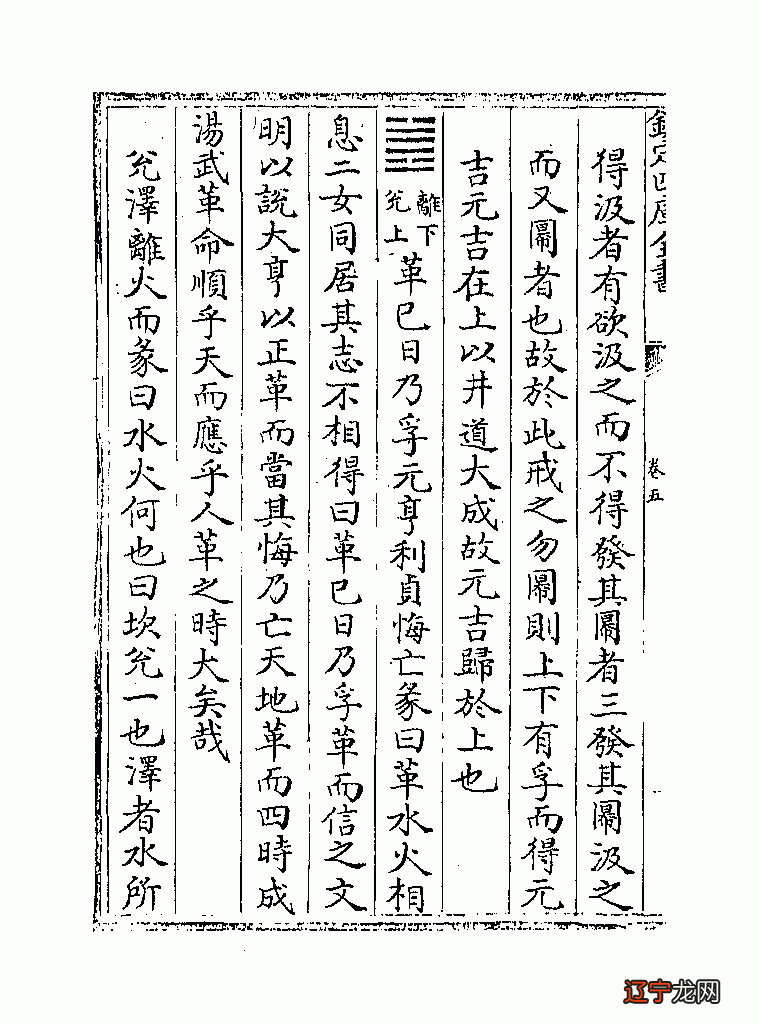 欽定四庫全書
卷五
得汲者有欲汲之而不得發其羃者三發其羃汲之
而又羃者也故於此戒之勿羃則上下有孚而得元
吉元吉在上以井道大成故元吉歸於上也
離下兌上革巳日乃孚元亨利貞悔亡彖曰革水火相
息二女同居其志不相得曰革巳日乃孚革而信之文
明以說大亨以正革而當其悔乃亡天地革而四時成
湯武革命順乎天而應乎人革之時大矣哉
兌澤離火而彖曰水火何也曰坎兌一也澤者水所
辽宁龙网